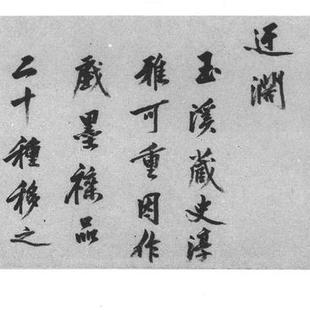 迂濶
玉溪藏史淳
雅可重因作
戲墨襍品
二十種移之